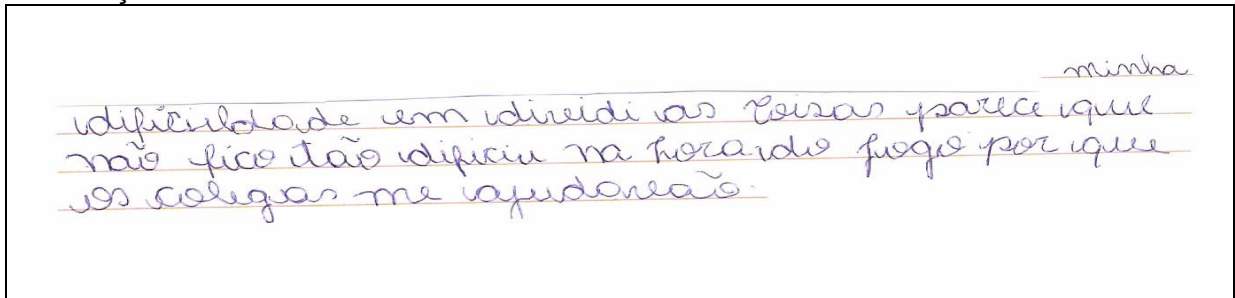 minha
dificuldade em dividi as coisas parece que
não fico tão dificiu na hora do jogo por que
os colegas me ajudavão.